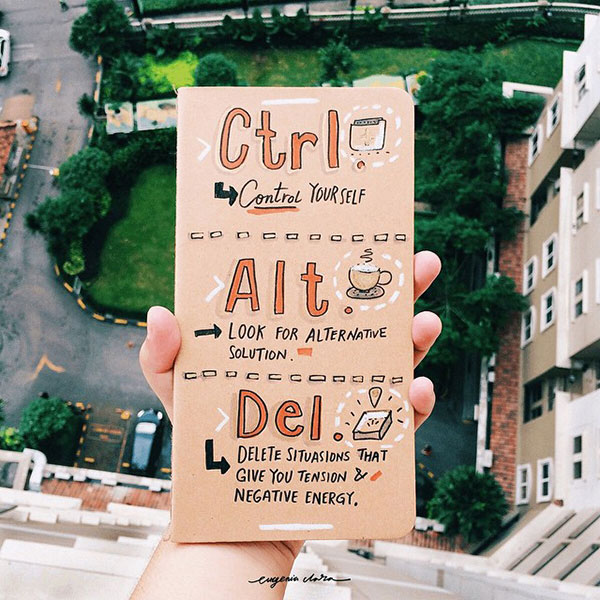 Ctrl.
Control YOURSELF
Alt.
LOOK FOR ALTERNATIVE
SOLUTION.
Del.
DELETE SITUASIONS THAT
GIVE YOU TENSION &
NEGATIVE ENERGY.
eugenia clara